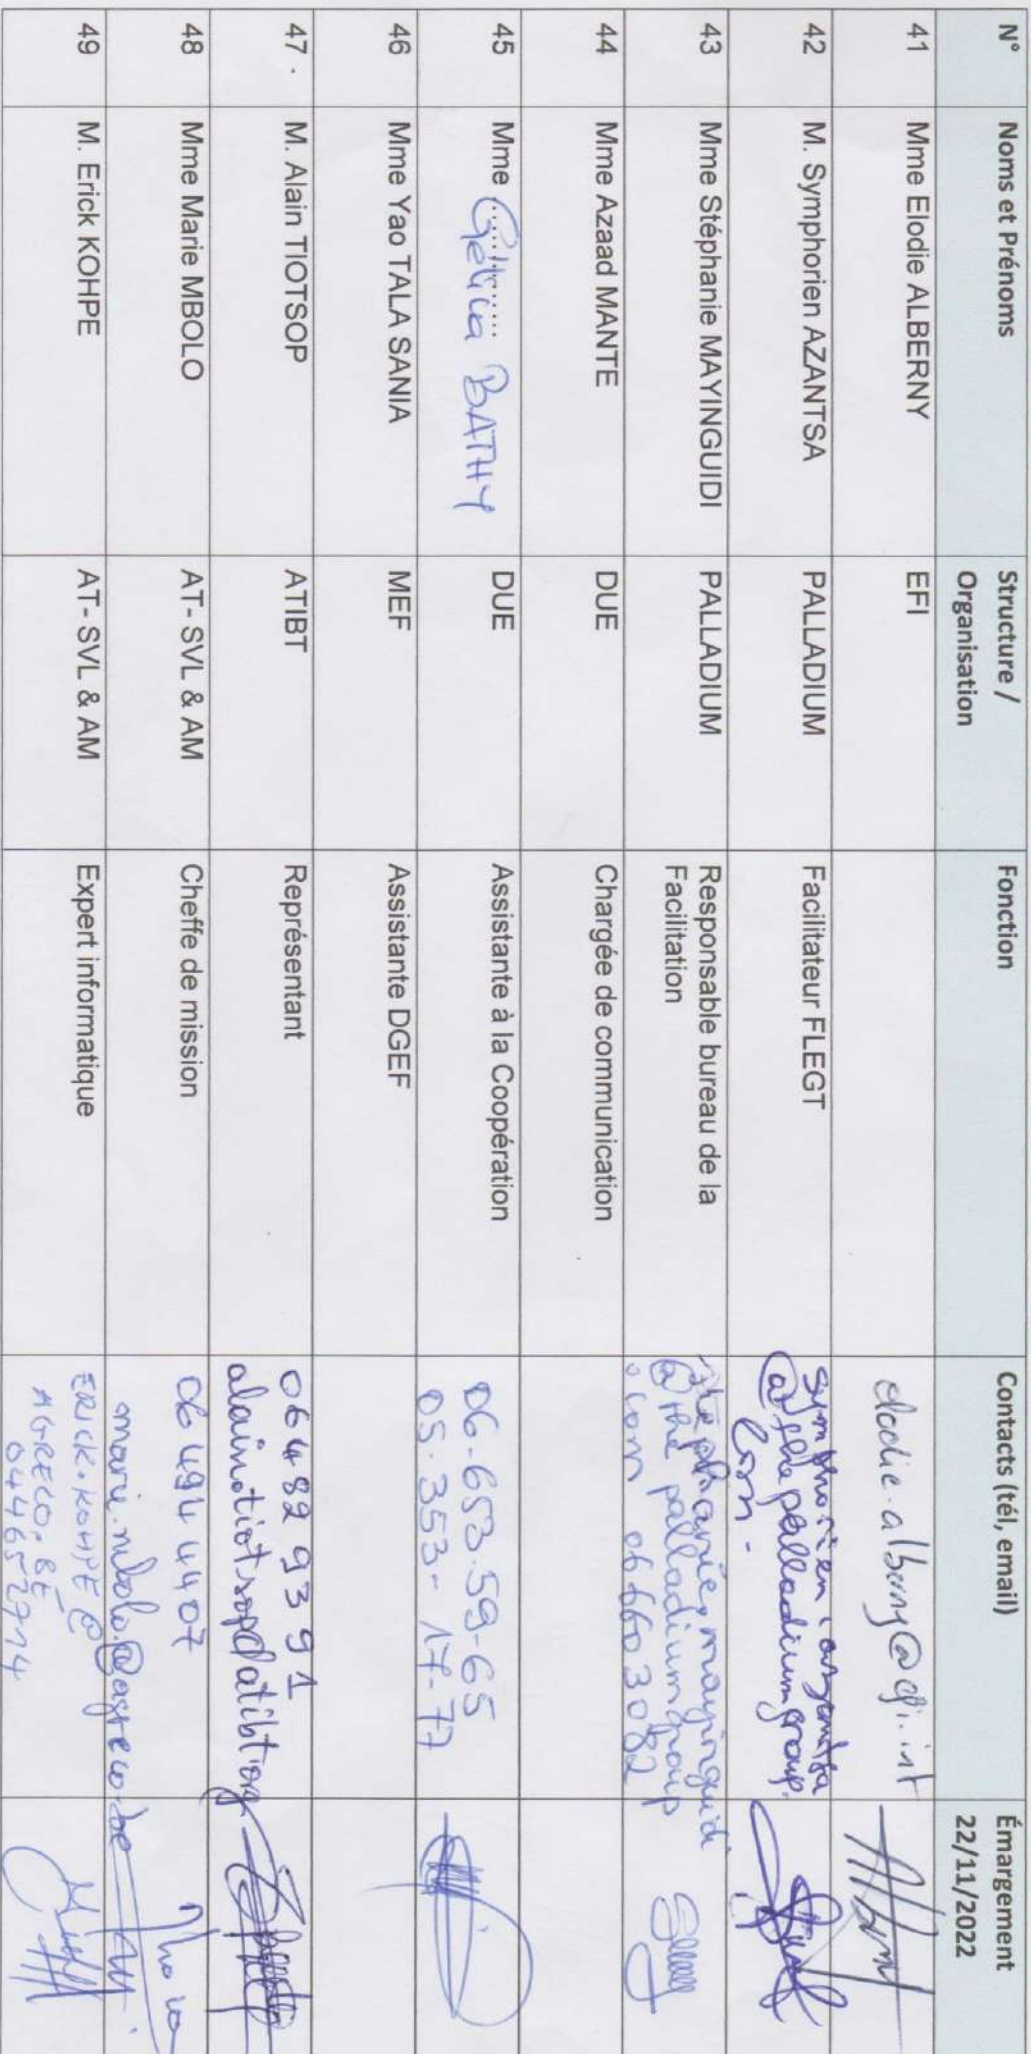 N° Noms et Prénoms Structure / Organisation Fonction Contacts (tél, email) Émargement 22/11/2022
41 Mme Elodie ALBERNY EFI elodie.alberny@efi.int
42 M. Symphorien AZANTSA PALLADIUM Facilitateur FLEGT symphorien.azantsa
@thepalladiumgroup.
com
43 Mme Stéphanie MAYINGUIDI PALLADIUM Responsable bureau de la Facilitation stephanie.mayinguidi
@thepalladiumgroup
.com 066603082
44 Mme Azaad MANTE DUE Chargée de communication
45 Mme BATHY DUE Assistante à la Coopération 06-653-59-65
05-353-17-77
46 Mme Yao TALA SANIA MEF Assistante DGEF
47. M. Alain TIOTSOP ATIBT Représentant 06 482 93 91
48 Mme Marie MBOLO AT- SVL & AM Cheffe de mission 06 494 44 07
marie.mbolo@agreco.be
49 M. Erick KOHPE AT- SVL & AM Expert informatique ERICK.KOHPE@
AGRECO.BE